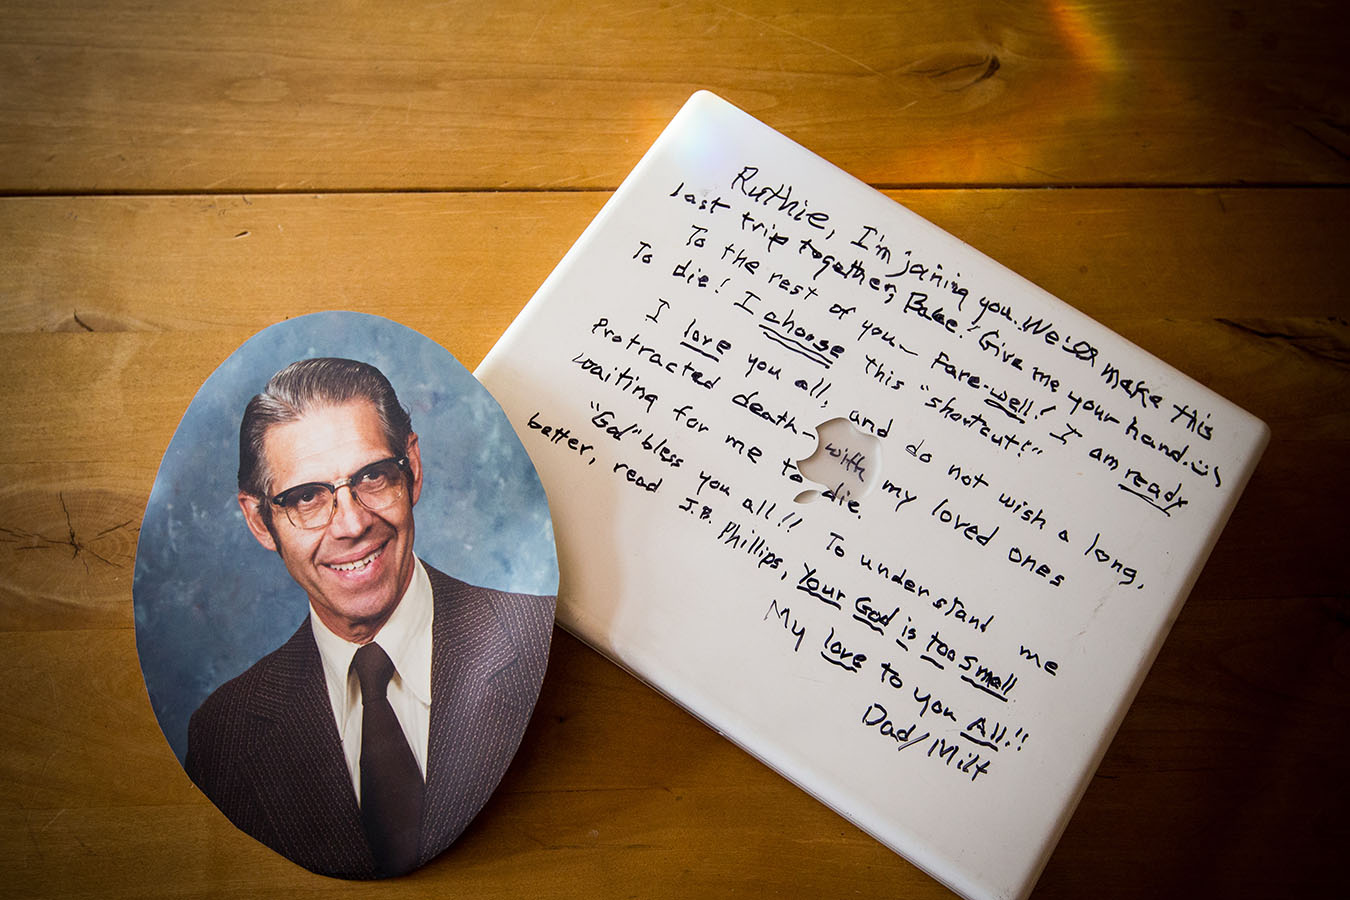 Ruthie, I'm joining you. We'll make this
last trip together, Babe! Give me your hand. :)
To the rest of you - Fare-well! I am ready
To die! I choose this "shortcut!"
I love you all, and do not wish a long,
protracted death - with my loved ones
waiting for me to die.
"God" bless you all!! To understand me
better, read J.B. Phillips, Your God is too small.
My love to you All!!
Dad/Milt